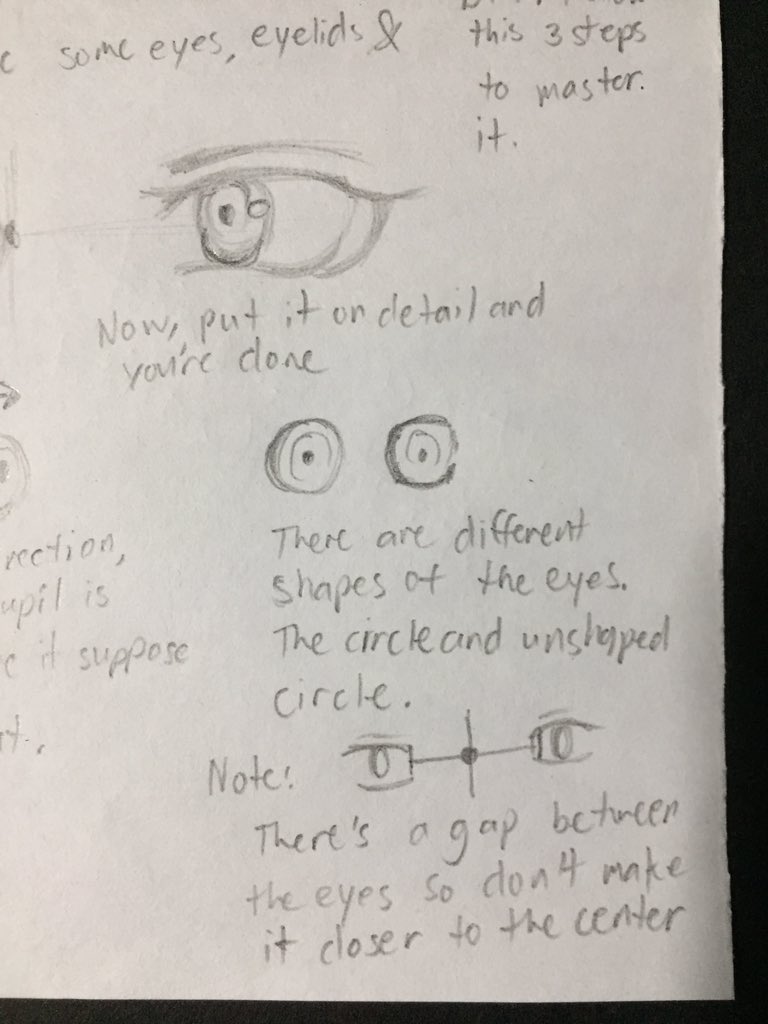 some eyes, eyelids &
this 3 steps
to master.
it.
Now, put it on detail and
you're done
rection,
upil is
it suppose
There are different
shapes of the eyes.
The circle and unshaped
circle.
Note:
There's a gap between
the eyes so don't make
it closer to the center